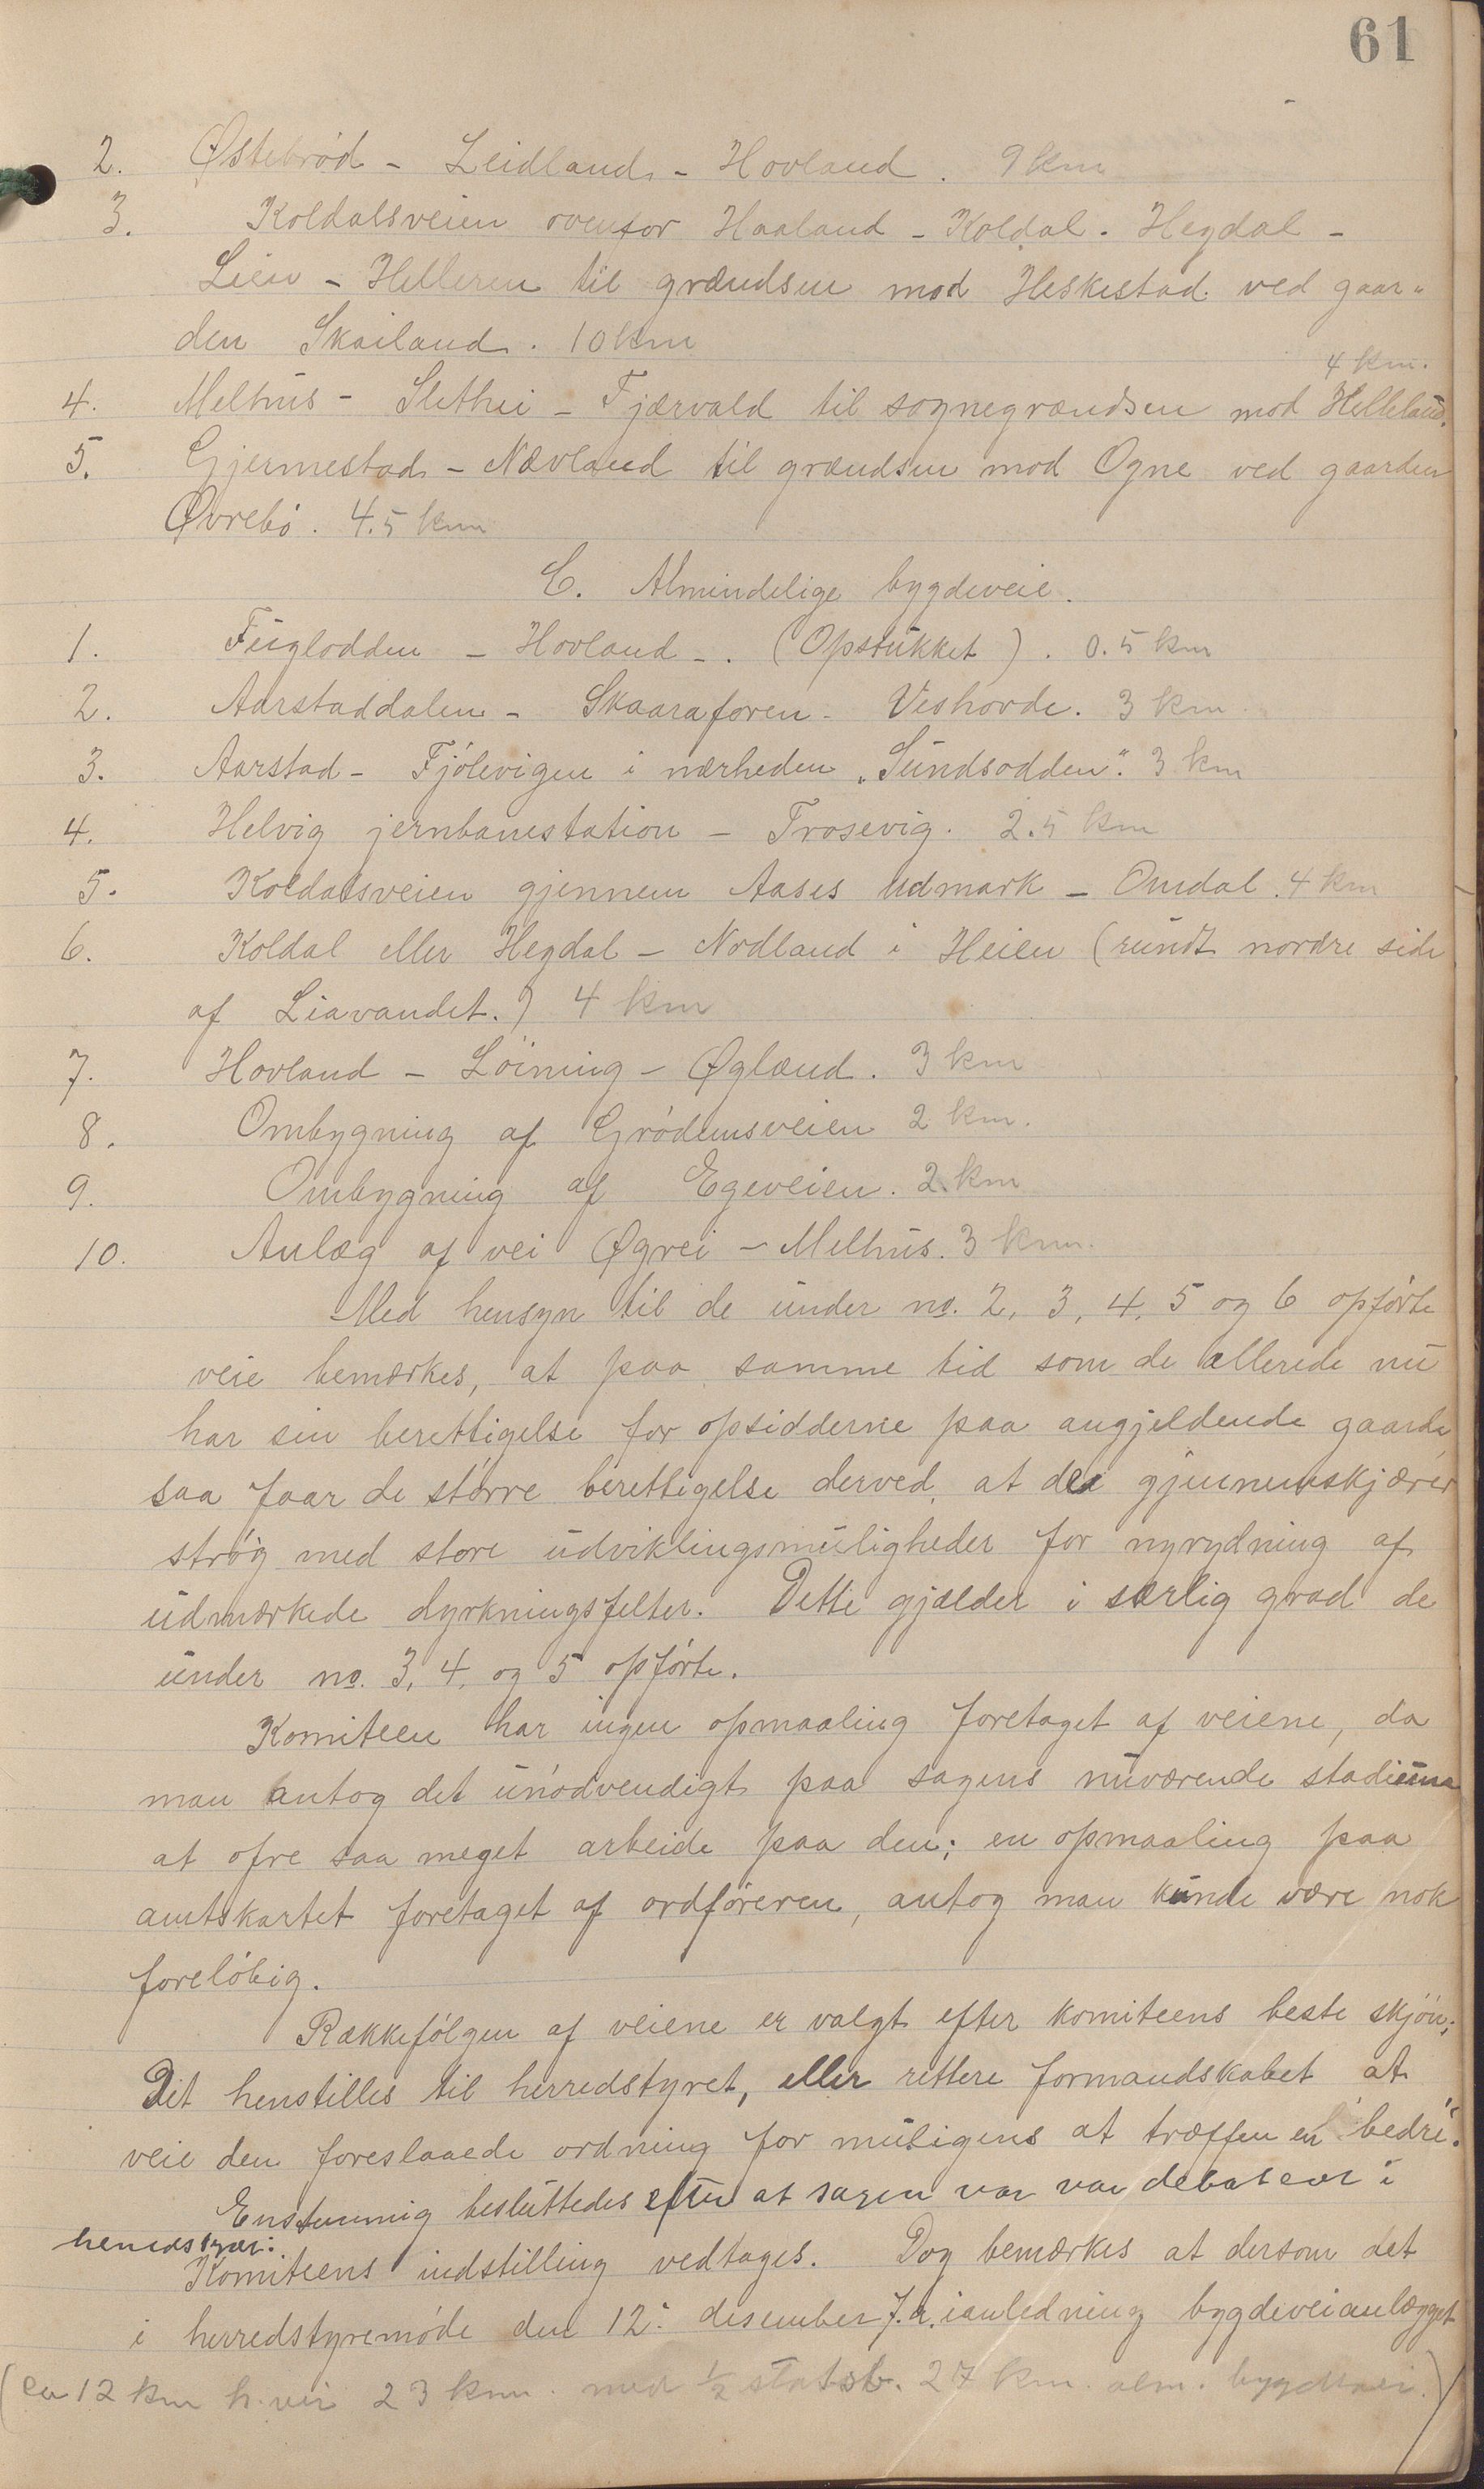 61
2. Østebrød - Leidland - Hovland. 9 km
3. Koldalsveien ovenfor Haaland - Koldal. Hegdal -
Lien - Helleren til grændsen mod Heskestad ved gaar-
den Skailand. 10 km
4 km.
4. Melhus - Slethei - Fjærvald til sognegrændsen mod Helleland.
5. Gjermestad - Nævland til grændsen mod Ogne ved gaarden
Øvrebö. 4.5 km
C. Almindelige bygdeveie.
1. Fuglodden - Hovland -. (Opstükket). 0.5 km
2. Aarstaddalen - Skaaraforen - Veshovde. 3 km
3. Aarstad - Fjölevigen i nærheden „Sundsodden". 3 km
4. Helvig jernbanestation - Trosevig. 2.5 km
5. Koldalsveien gjennem Aases udmark - Omdal. 4 km
6. Koldal eller Hegdal - Nodland i Heien (rundt nordre side
af Liavandet.) 4 km
7. Hovland - Löining - Øglænd. 3 km
8. Ombygning af Grödemsveien 2 km.
9. Ombygning af Egeveien. 2 km
10. Anlæg af vei Øgrei - Melhus. 3 km.
Med hensyn til de under no. 2, 3, 4, 5 og 6 opförte
veie bemærkes, at paa samme tid som de allerede nu
har sin berettigelse for opsidderne paa angjeldende gaarde,
saa faar de större berettigelse derved, at de gjennemskjærer
strög med store udviklingsmuligheder for nyrydning af
udmærkede dyrkningsfelter. Dette gjælder i særlig grad de
under no. 3, 4, og 5 opförte.
Komiteen har ingen opmaaling foretaget af veiene, da
man antog det unödvendigt paa sagens nuværende stadium
at ofre saa meget arbeide paa den; en opmaaling paa
amtskartet foretaget af ordföreren, antog man kunde være nok
forelöbig.
Rækkefölgen af veiene er valgt efter komiteens beste skjön;
Det henstilles til herredstyret, eller rettere formandskabet at
veie den foreslaaede ordning for muligens at træffen en bedre.
Enstemmig besluttedes efter at sagen var var debateret i
herredstyret:
Komiteens indstilling vedtages. Dog bemærkes at dersom det
i herredstyremöde den 12. desember f.a. ianledning bygdeveianlægget
(ca 12 km h.vei 23 km. med ½ statsb. 27 km. alm. bygdevei.)